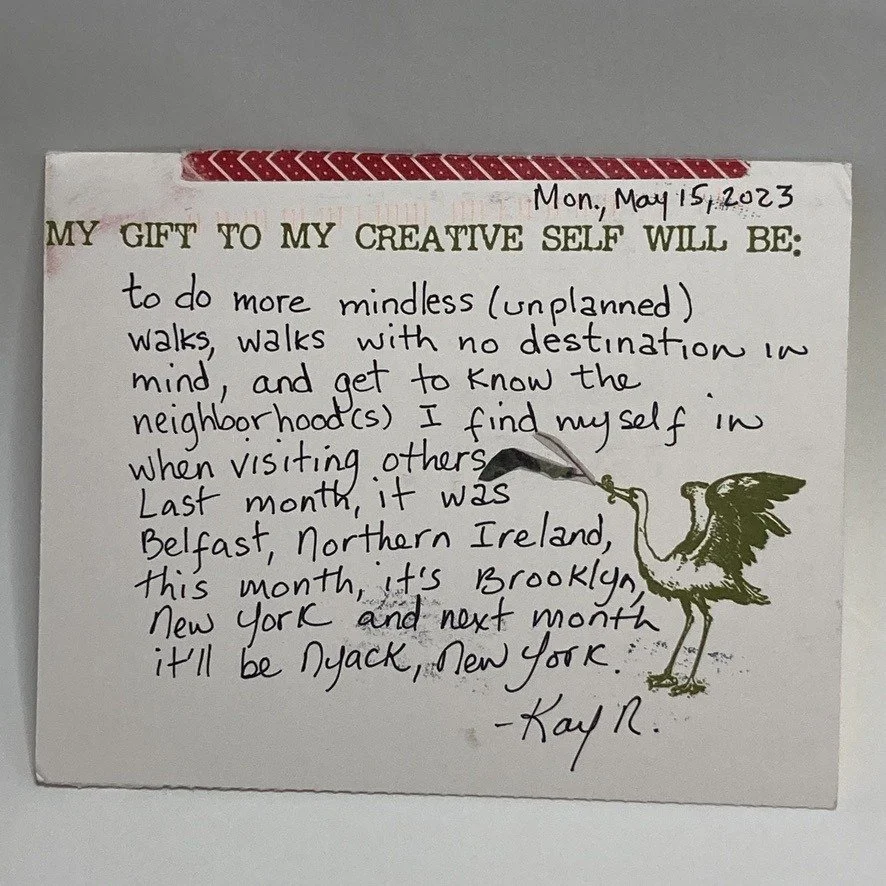 Mon., May 15, 2023
MY GIFT TO MY CREATIVE SELF WILL BE:
to do more mindless (unplanned)
walks, walks with no destination in
mind, and get to know the
neighborhood(s) I find myself in
when visiting others.
Last month, it was
Belfast, Northern Ireland,
this month, it's Brooklyn,
New York and next month
it'll be Nyack, New York.
-Kay R.